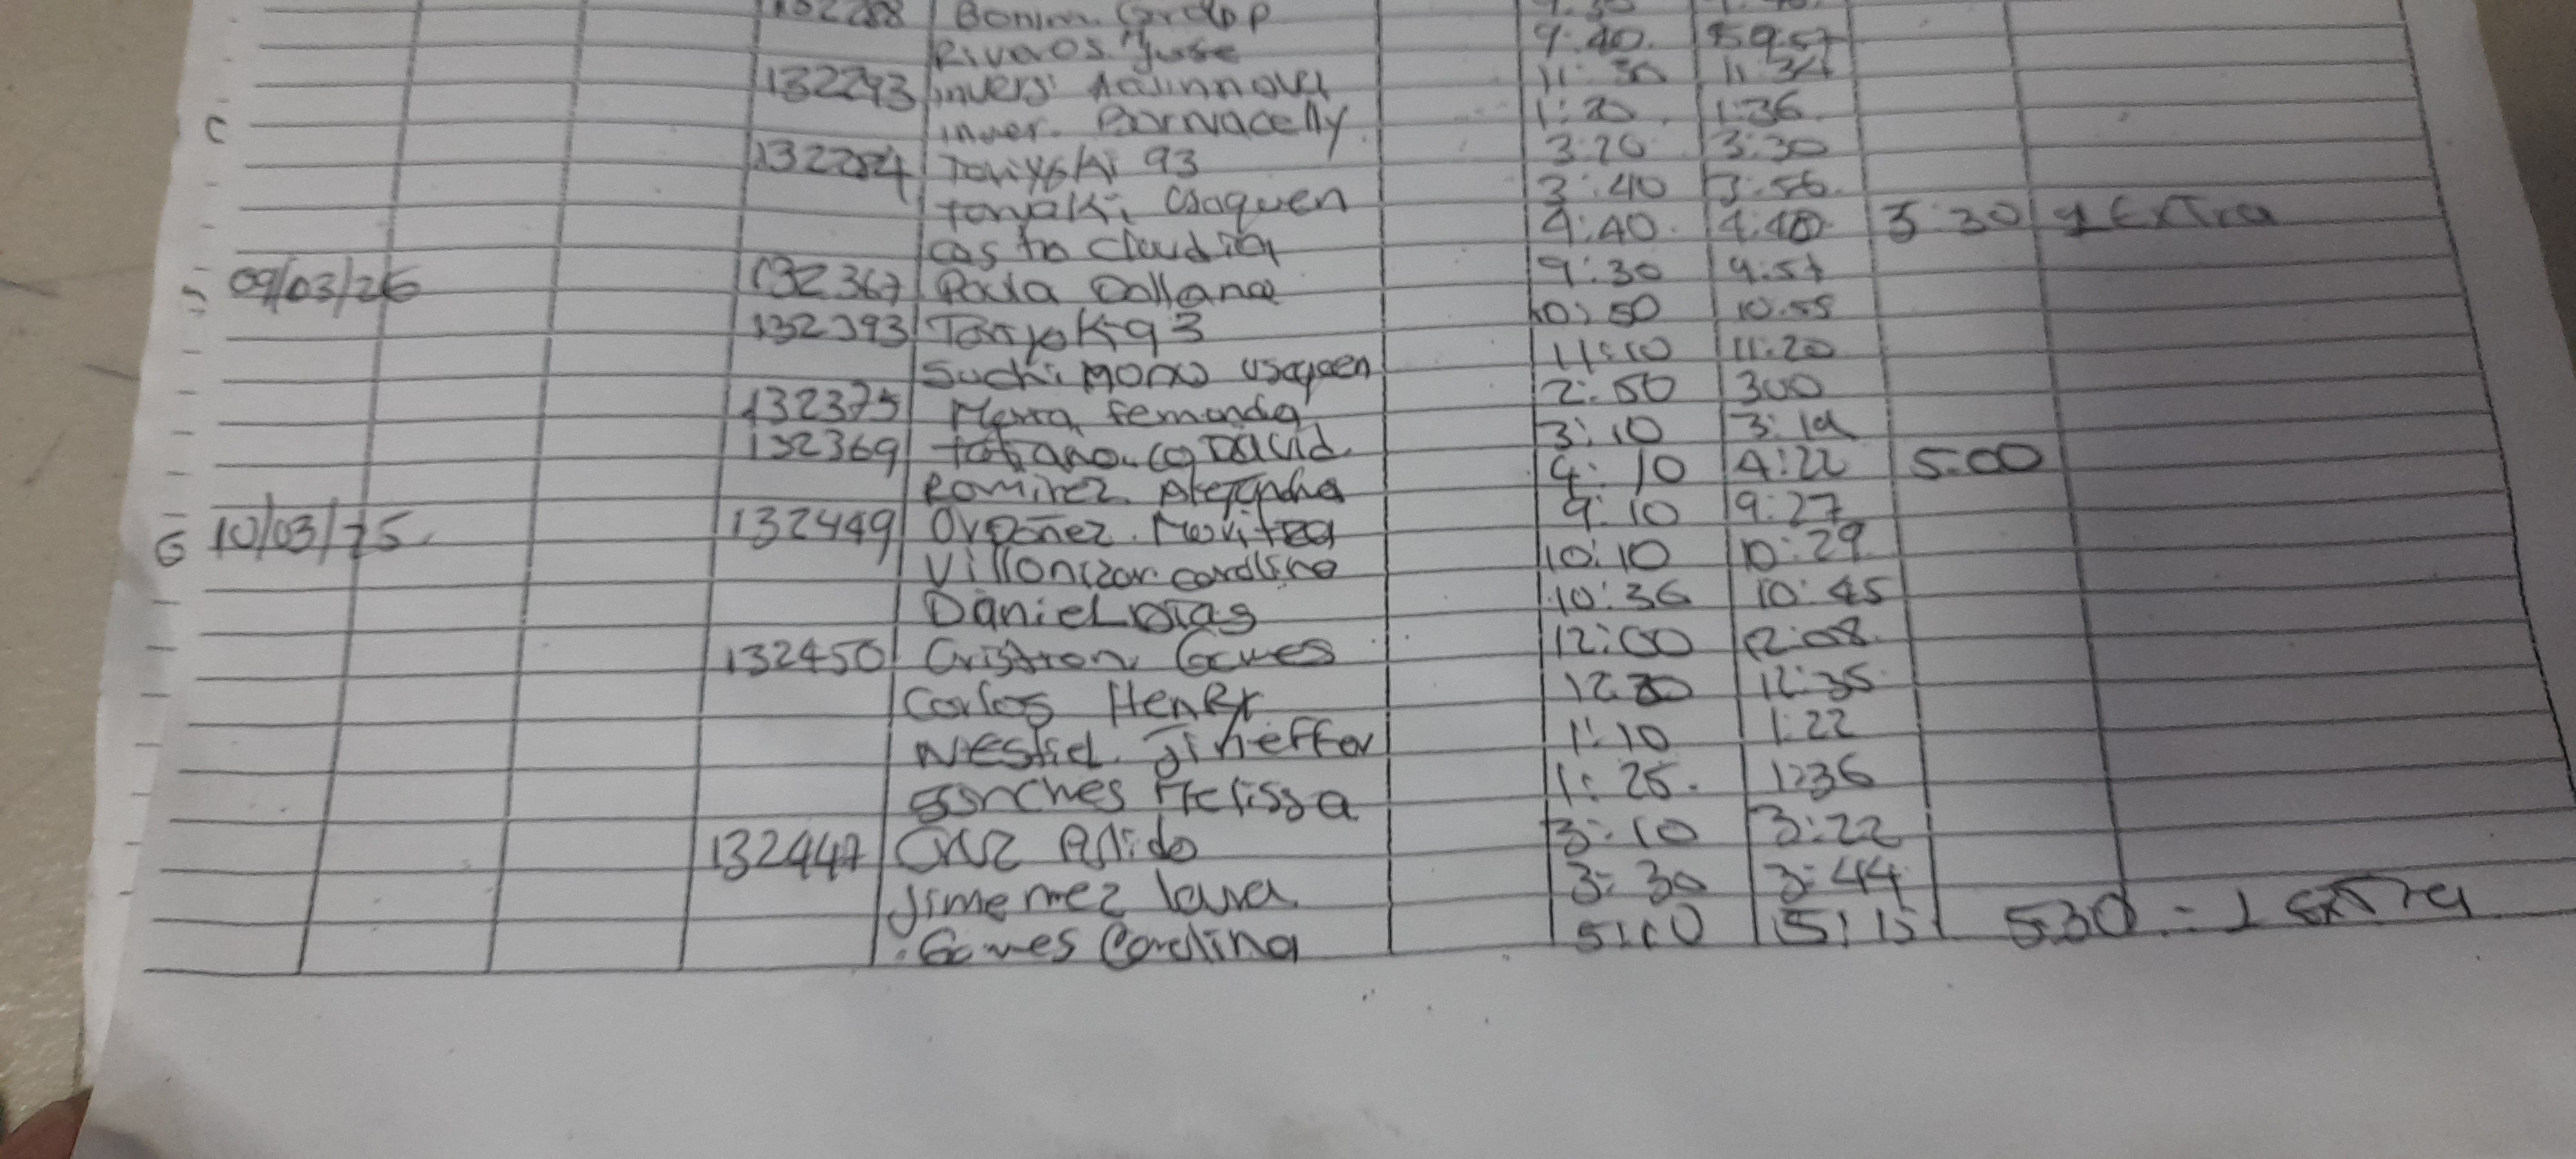 132288 Bonim. Group 9:30
Rivaos Juse 9:40. 9:57
132293 invers Adinnova 11:30 11:34
C inver. Barnacelly 1:20 1:36
132284 Toriyoki 93 3:20 3:30
toryoki Usaquen 3:40 3:56
castro claudia 4:40. 4:40 5:30 1 Extra
09/03/26 132367 Paula Dallana 9:30 9:57
132393 Toryoki 93 10:50 10:55
Suchi mono usaquen 11:10 11:20
132375 Merra fernanda 2:50 300
132369 David 3:10 3:19
Ramirez. Alejandra 4:10 4:22 5:00
G 10/03/25. 132449 Ordoñez. 9:10 9:27
Villonizar carolina 10:10 10:29
Daniel Dias 10:36 10:45
132450 Cristian. Gomes 12:00 12:08
Carlos Henry 12:20 12:35
Jineffer 1:10 1:22
sanches Melissa 1:25. 1:36
132447 Cruz 3:10 3:22
Jimemez Laura 3:30 3:44
Gomes Carolina 5:10 5:15 530 - 1 extra